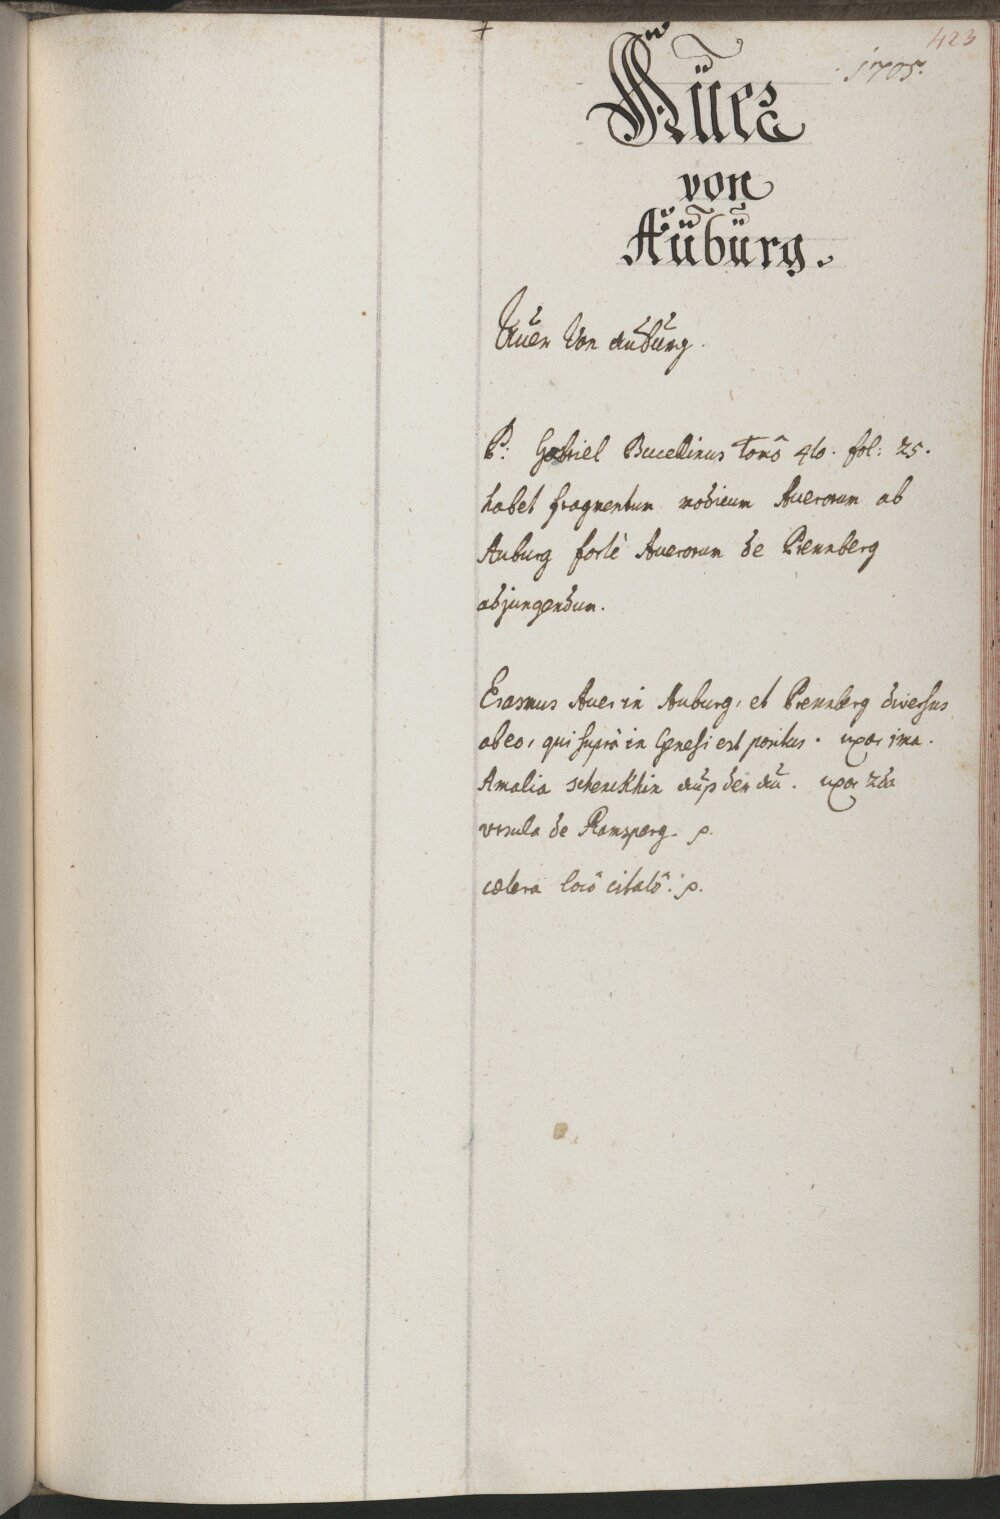 423
1705.
Auer
von
Auburg.
Auer Von auburg.
P: Gabriel Bucellinus tomô 4to. fol: 25.
habet fragmentum modicum Auerorum ab
Auburg fortè Auerorum de Prennberg
adjungendum.
Erasmus Auer in Auburg, et Prennberg diversus
ab eo, qui suprà in Genesi est positus. uxor 1ma.
Amalia schenckhin auß der au. uxor 2da
vrsula de Ramsperg. p.
cætera locô citatô. p.